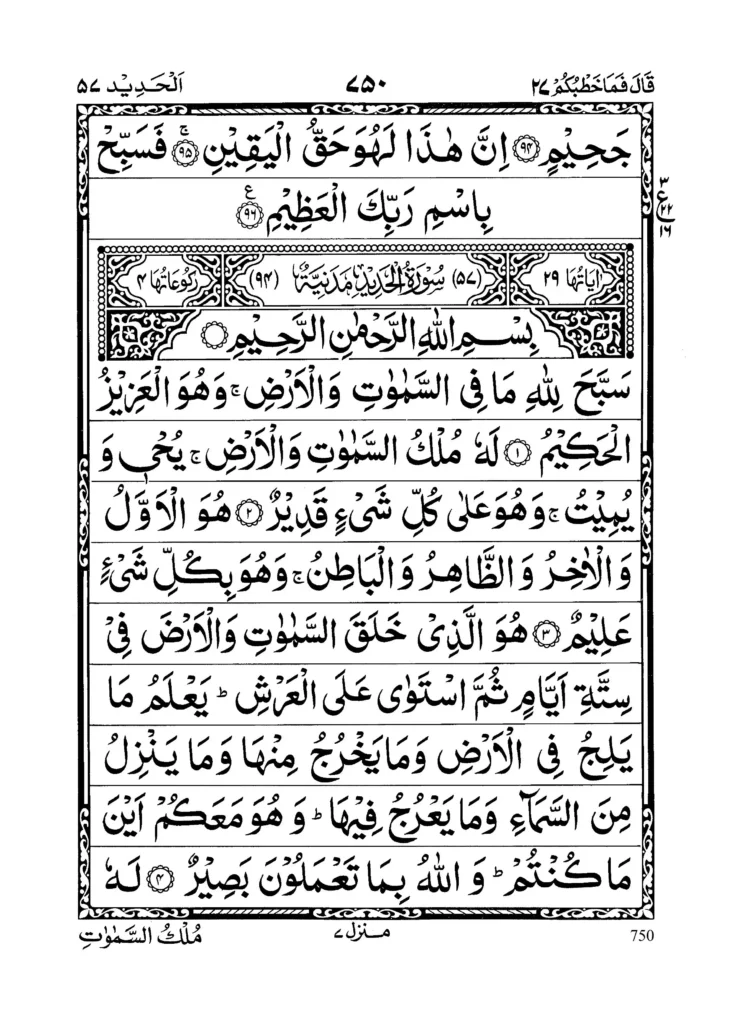 قَالَ فَمَا خَطْبُكُمْ ٢٧ ٧٥٠ اَلْحَدِيْد ٥٧
جَحِيْمٍ ﴿٩٤﴾ اِنَّ هٰذَا لَهُوَ حَقُّ الْيَقِيْنِ ۚ ﴿٩٥﴾ فَسَبِّحْ
بِاسْمِ رَبِّكَ الْعَظِيْمِ ﴿٩٦﴾ ع
٣
ع
٢٢
١٦
اٰيَاتُهَا ٢٩ (٥٧) سُوْرَةُ الْحَدِيْدِ مَدَنِيَّةٌ (٩٤) رُكُوْعَاتُهَا ٤
بِسْمِ اللّٰهِ الرَّحْمٰنِ الرَّحِيْمِ
سَبَّحَ لِلّٰهِ مَا فِى السَّمٰوٰتِ وَالْاَرْضِ ۚ وَهُوَ الْعَزِيْزُ
الْحَكِيْمُ ﴿١﴾ لَهٗ مُلْكُ السَّمٰوٰتِ وَالْاَرْضِ ۚ يُحْىٖ وَ
يُمِيْتُ ۚ وَهُوَ عَلٰى كُلِّ شَىْءٍ قَدِيْرٌ ﴿٢﴾ هُوَ الْاَوَّلُ
وَالْاٰخِرُ وَالظَّاهِرُ وَالْبَاطِنُ ۚ وَهُوَ بِكُلِّ شَىْءٍ
عَلِيْمٌ ﴿٣﴾ هُوَ الَّذِىْ خَلَقَ السَّمٰوٰتِ وَالْاَرْضَ فِىْ
سِتَّةِ اَيَّامٍ ثُمَّ اسْتَوٰى عَلَى الْعَرْشِ ؕ يَعْلَمُ مَا
يَلِجُ فِى الْاَرْضِ وَمَا يَخْرُجُ مِنْهَا وَمَا يَنْزِلُ
مِنَ السَّمَآءِ وَمَا يَعْرُجُ فِيْهَا ؕ وَهُوَ مَعَكُمْ اَيْنَ
مَا كُنْتُمْ ؕ وَ اللّٰهُ بِمَا تَعْمَلُوْنَ بَصِيْرٌ ﴿٤﴾ لَهٗ
750 منزل ٧ مُلْكُ السَّمٰوٰتِ